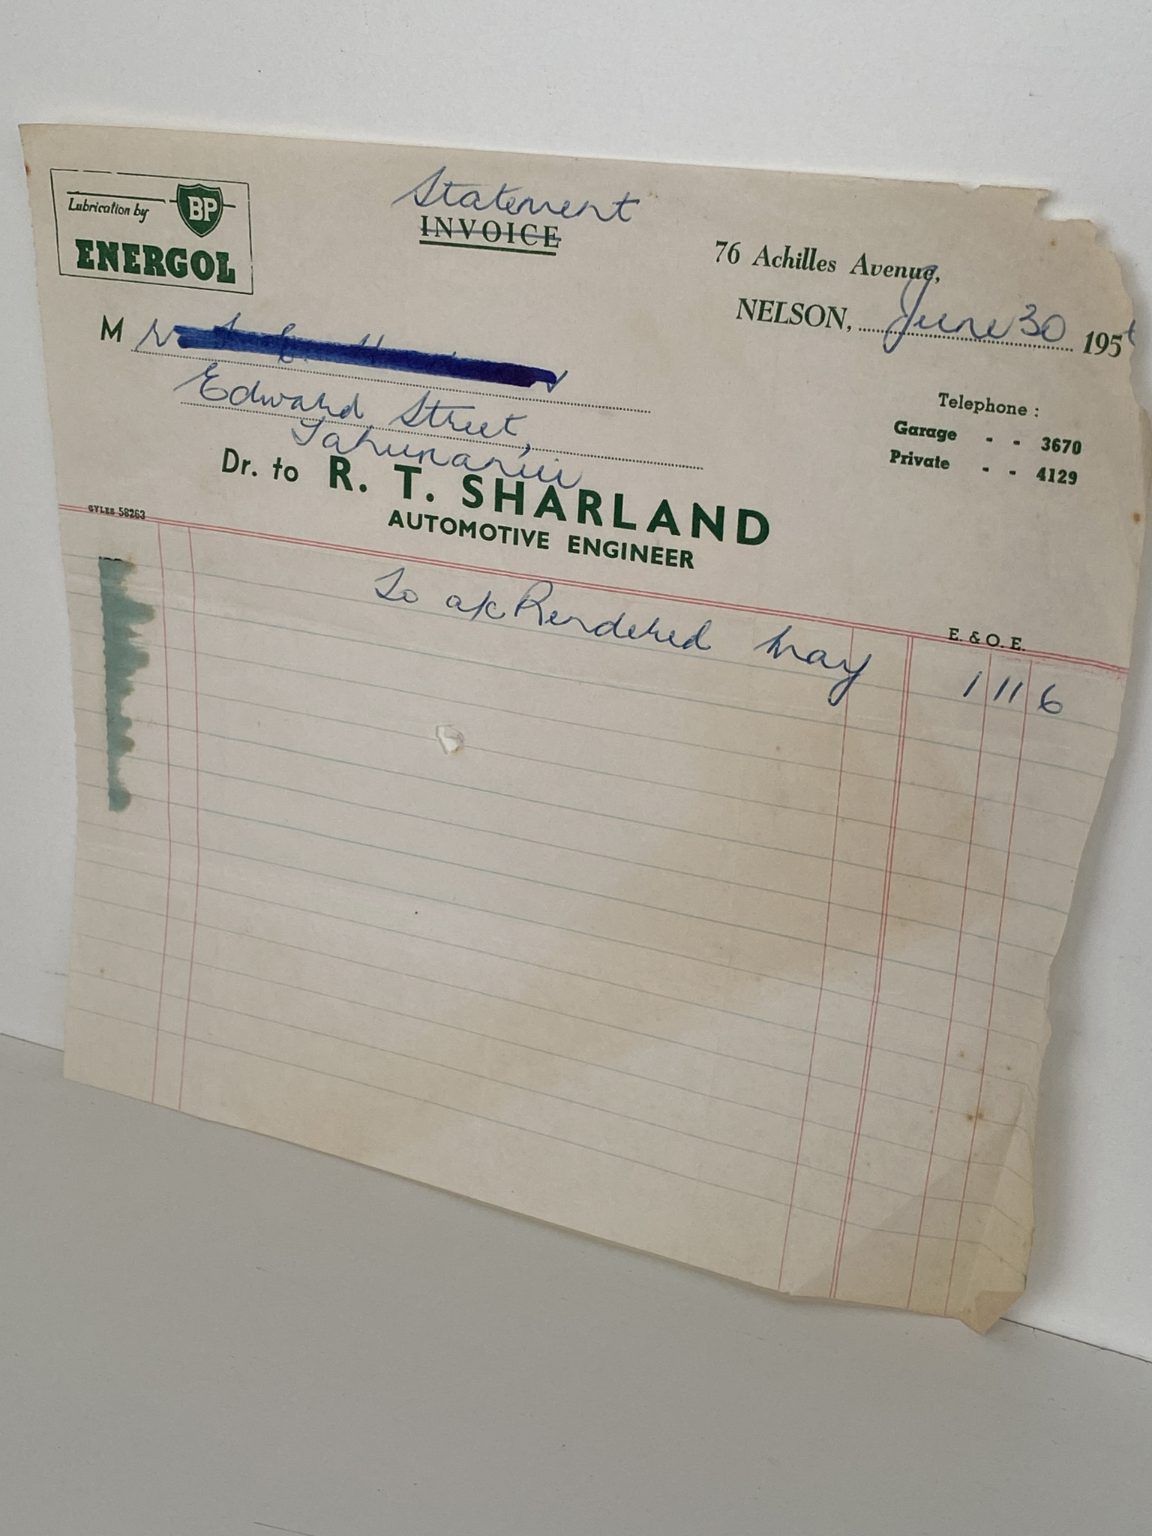 Lubrication by BP
ENERGOL
Statement
INVOICE
76 Achilles Avenue,
NELSON, June 30 195
M r
Edward Street,
Tahunanui
Telephone :
Garage - - 3670
Private - - 4129
Dr. to R. T. SHARLAND
AUTOMOTIVE ENGINEER
GYLES 58263
E. & O. E.
To a/c Rendered May 1 11 6